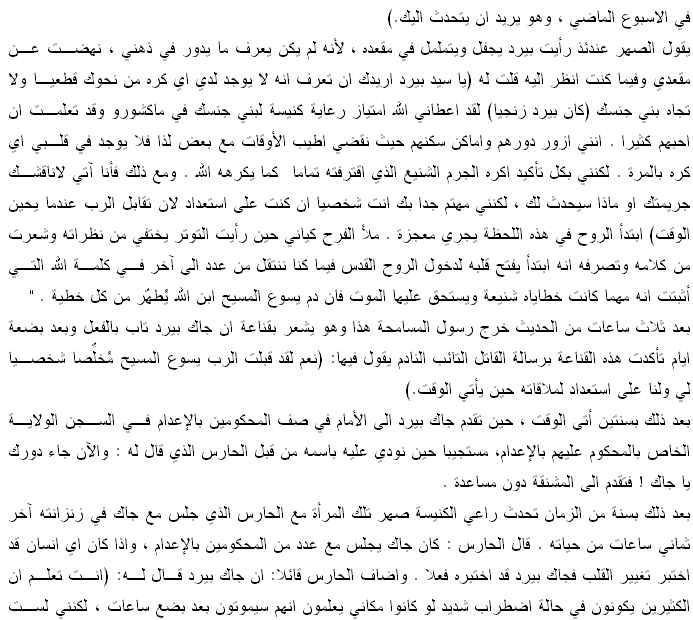 في الاسبوع الماضي ، وهو يريد ان يتحدث اليك.)
يقول الصهر عندئذ رأيت بيرد يجفل ويتململ في مقعده ، لأنه لم يكن يعرف ما يدور في ذهني ، نهضت عن
مقعدي وفيما كنت انظر اليه قلت له (يا سيد بيرد اريدك ان تعرف انه لا يوجد لدي اي كره من نحوك قطعيا ولا
تجاه بني جنسك (كان بيرد زنجيا) لقد اعطاني الله امتياز رعاية كنيسة لبني جنسك في ماكشورو وقد تعلمت ان
احبهم كثيرا . انني ازور دورهم واماكن سكنهم حيث نقضي اطيب الأوقات مع بعض لذا فلا يوجد في قلبي اي
كره بالمرة . لكنني بكل تأكيد اكره الجرم الشنيع الذي اقترفته تماما كما يكرهه الله . ومع ذلك فأنا آتي لاناقشك
جريمتك او ماذا سيحدث لك ، لكنني مهتم جدا بك انت شخصيا ان كنت على استعداد لان تقابل الرب عندما يحين
الوقت) ابتدأ الروح في هذه اللحظة يجري معجزة . ملأ الفرح كياني حين رأيت التوتر يختفي من نظراته وشعرت
من كلامه وتصرفه انه ابتدأ يفتح قلبه لدخول الروح القدس فيما كنا ننتقل من عدد الى آخر في كلمة الله التي
أثبتت انه مهما كانت خطاياه شنيعة ويستحق عليها الموت فان دم يسوع المسيح ابن الله يُطهّر من كل خطية . "
بعد ثلاث ساعات من الحديث خرج رسول المسامحة هذا وهو يشعر بقناعة ان جاك بيرد تاب بالفعل وبعد بضعة
ايام تأكدت هذه القناعة برسالة القاتل التائب النادم يقول فيها: (نعم لقد قبلت الرب يسوع المسيح مُخلّصا شخصيا
لي ولنا على استعداد لملاقاته حين يأتي الوقت.)
بعد ذلك بسنتين أتى الوقت ، حين تقدم جاك بيرد الى الأمام في صف المحكومين بالإعدام في السجن الولاية
الخاص بالمحكوم عليهم بالإعدام، مستجيبا حين نودي عليه باسمه من قبل الحارس الذي قال له : والآن جاء دورك
يا جاك ! فتقدم الى المشنقة دون مساعدة .
بعد ذلك بسنة من الزمان تحدث راعي الكنيسة صهر تلك المرأة مع الحارس الذي جلس مع جاك في زنزانته آخر
ثماني ساعات من حياته . قال الحارس : كان جاك يجلس مع عدد من المحكومين بالإعدام ، واذا كان اي انسان قد
اختبر تغيير القلب فجاك بيرد قد اختبره فعلا . واضاف الحارس قائلا: ان جاك بيرد قال له: (انت تعلم ان
الكثيرين يكونون في حالة اضطراب شديد لو كانوا مكاني يعلمون انهم سيموتون بعد بضع ساعات ، لكنني لست